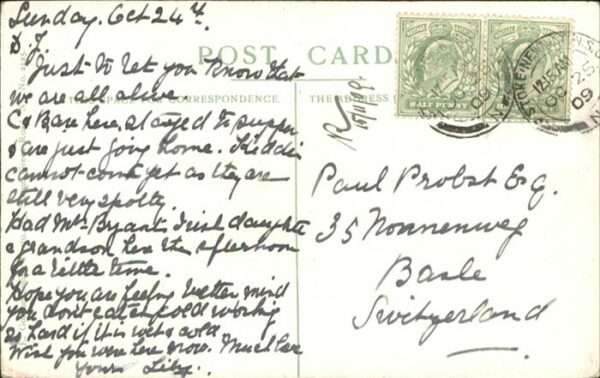 Sunday. Oct 24th.
POST CARD
D. J.
Just to let you know that
we are all alive.
SPACE FOR CORRESPONDENCE
THE ADDRESS
C & Bare here, stayed to supper
& are just going home. Kiddie
cannot come yet as they are
still very spotty.
Had Mrs Bryant, Irish daughter
& grandson here this afternoon
for a little time.
Hope you are feeling better mind
you don't catch cold working
so hard if it is wet & cold.
Wish you were here now. Much love
Yours Lily.
HALF PENNY
STOKE NEW
12.15 AM
OC 25
09
N.
Paul Probst Esq.
35 Nonnenweg
Basle
Switzerland